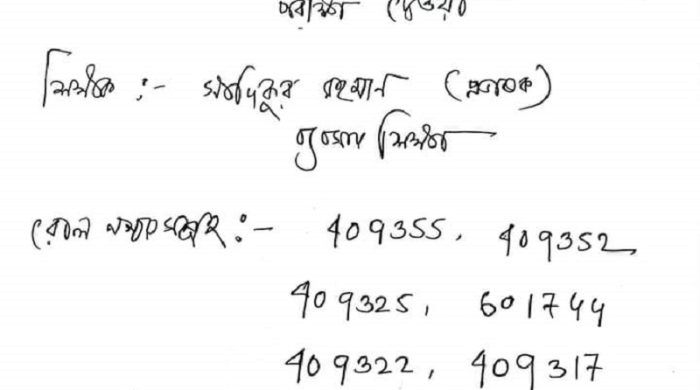 পরীক্ষা দেওয়া
শিক্ষক :- সাদিকুর রহমান (প্রভাষক)
শিক্ষা
রোল নম্বরসমূহ :- 409355, 409352
409325, 601744
409322, 409317